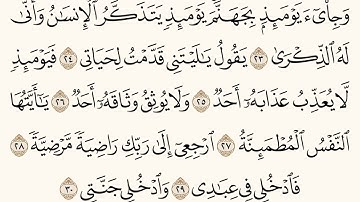 وَجِا۟ىٓءَ يَوْمَئِذٍۭ بِجَهَنَّمَ ۚ يَوْمَئِذٍ يَتَذَكَّرُ ٱلْإِنسَٰنُ وَأَنَّىٰ
لَهُ ٱلذِّكْرَىٰ ٢٣ يَقُولُ يَٰلَيْتَنِى قَدَّمْتُ لِحَيَاتِى ٢٤ فَيَوْمَئِذٍ
لَّا يُعَذِّبُ عَذَابَهُۥٓ أَحَدٌ ٢٥ وَلَا يُوثِقُ وَثَاقَهُۥٓ أَحَدٌ ٢٦ يَٰٓأَيَّتُهَا
ٱلنَّفْسُ ٱلْمُطْمَئِنَّةُ ٢٧ ٱرْجِعِىٓ إِلَىٰ رَبِّكِ رَاضِيَةً مَّرْضِيَّةً ٢٨
فَٱدْخُلِى فِى عِبَٰدِى ٢٩ وَٱدْخُلِى جَنَّتِى ٣٠